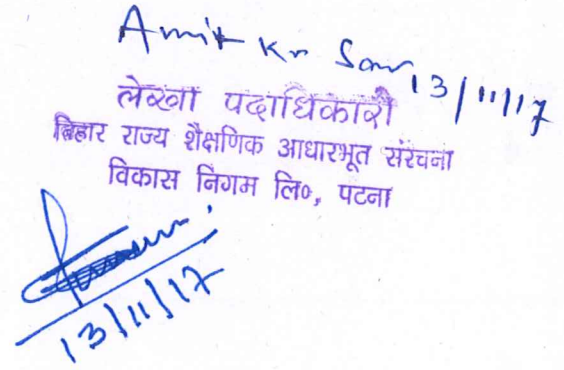 Amit Kr 13/11/17
लेखा पदाधिकारी
बिहार राज्य शैक्षणिक आधारभूत संरचना
विकास निगम लि०, पटना
13/11/17